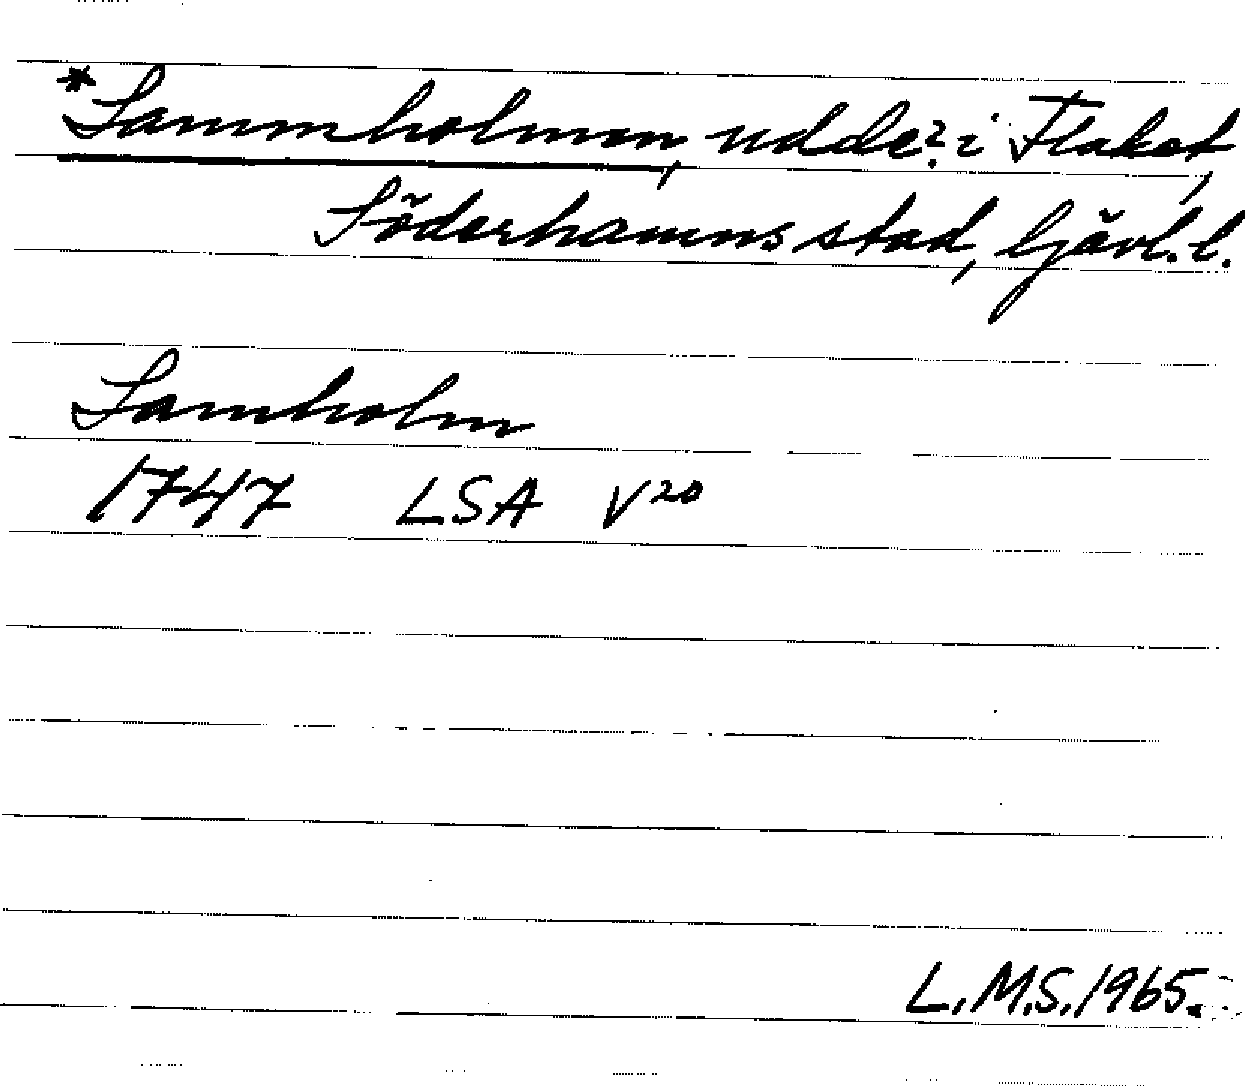 *Sammholmen, udde? i Flaket,
Söderhamns stad, Gävl. l.
Samholm
1747 LSA V²⁰
L.M.S. 1965.